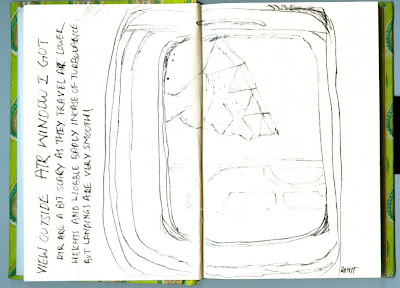 VIEW OUTSIDE ATR WINDOW I GOT
ATR ARE A BIT SCARY AS THEY TRAVEL AT LOWER
HEIGHTS AND WOBBLE BADLY INCASE OF TURBULENCE
BUT LANDINGS ARE VERY SMOOTH!